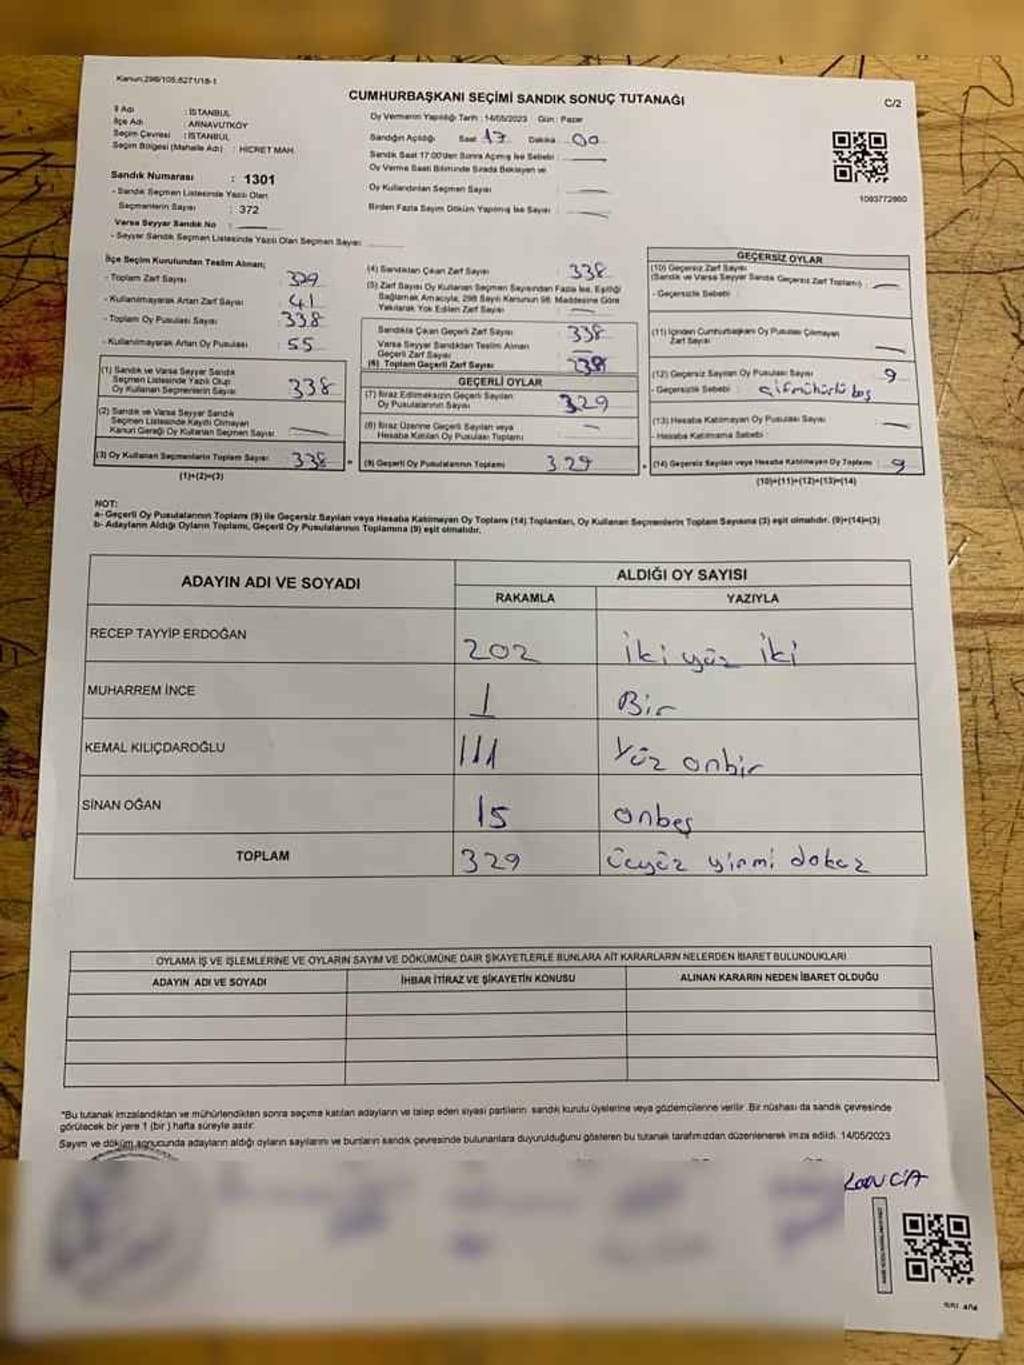 Kanun:298/105,6271/18-1
CUMHURBAŞKANI SEÇİMİ SANDIK SONUÇ TUTANAĞI
C/2
İl Adı : İSTANBUL
İlçe Adı : ARNAVUTKÖY
Seçim Çevresi : İSTANBUL
Seçim Bölgesi (Mahalle Adı) : HİCRET MAH.
Oy Vermenin Yapıldığı Tarih : 14/05/2023 Gün : Pazar
Sandığın Açıldığı Saat 17 Dakika 00
Sandık Saat 17:00'den Sonra Açılmış İse Sebebi :
Oy Verme Saati Bitiminde Sırada Bekleyen ve
Oy Kullandırılan Seçmen Sayısı
Birden Fazla Sayım Döküm Yapılmış İse Sayısı
1093772860
Sandık Numarası : 1301
- Sandık Seçmen Listesinde Yazılı Olan
Seçmenlerin Sayısı : 372
Varsa Seyyar Sandık No :
- Seyyar Sandık Seçmen Listesinde Yazılı Olan Seçmen Sayısı
İlçe Seçim Kurulundan Teslim Alınan;
- Toplam Zarf Sayısı 329
- Kullanılmayarak Artan Zarf Sayısı 41
- Toplam Oy Pusulası Sayısı 338
- Kullanılmayarak Artan Oy Pusulası 55
(1) Sandık ve Varsa Seyyar Sandık
Seçmen Listesinde Yazılı Olup
Oy Kullanan Seçmenlerin Sayısı 338
(2) Sandık ve Varsa Seyyar Sandık
Seçmen Listesinde Kayıtlı Olmayan
Kanun Gereği Oy Kullanan Seçmen Sayısı
(3) Oy Kullanan Seçmenlerin Toplam Sayısı 338
(1)+(2)=(3)
(4) Sandıktan Çıkan Zarf Sayısı 338
(5) Zarf Sayısı Oy Kullanan Seçmen Sayısından Fazla İse, Eşitliği
Sağlamak Amacıyla, 298 Sayılı Kanunun 98. Maddesine Göre
Yakılarak Yok Edilen Zarf Sayısı
Sandıkta Çıkan Geçerli Zarf Sayısı 338
Varsa Seyyar Sandıktan Teslim Alınan
Geçerli Zarf Sayısı
(6) Toplam Geçerli Zarf Sayısı 338
GEÇERLİ OYLAR
(7) İtiraz Edilmeksizin Geçerli Sayılan
Oy Pusulalarının Sayısı 329
(8) İtiraz Üzerine Geçerli Sayılan veya
Hesaba Katılan Oy Pusulası Toplamı
(9) Geçerli Oy Pusulalarının Toplamı 329
GEÇERSİZ OYLAR
(10) Geçersiz Zarf Sayısı
(Sandık ve Varsa Seyyar Sandık Geçersiz Zarf Toplamı) :
- Geçersizlik Sebebi :
(11) İçinden Cumhurbaşkanı Oy Pusulası Çıkmayan
Zarf Sayısı
(12) Geçersiz Sayılan Oy Pusulası Sayısı 9
- Geçersizlik Sebebi : çift mühürlü boş
(13) Hesaba Katılmayan Oy Pusulası Sayısı
- Hesaba Katılmama Sebebi :
(14) Geçersiz Sayılan veya Hesaba Katılmayan Oy Toplamı : 9
(10)+(11)+(12)+(13)=(14)
NOT:
a- Geçerli Oy Pusulalarının Toplamı (9) ile Geçersiz Sayılan veya Hesaba Katılmayan Oy Toplamı (14) Toplamları, Oy Kullanan Seçmenlerin Toplam Sayısına (3) eşit olmalıdır. (9)+(14)=(3)
b- Adayların Aldığı Oyların Toplamı, Geçerli Oy Pusulalarının Toplamına (9) eşit olmalıdır.
ADAYIN ADI VE SOYADI
ALDIĞI OY SAYISI
RAKAMLA YAZIYLA
RECEP TAYYİP ERDOĞAN 202 İki yüz İki
MUHARREM İNCE 1 Bir
KEMAL KILIÇDAROĞLU 111 Yüz onbir
SİNAN OĞAN 15 onbeş
TOPLAM 329 Üçyüz yirmi dokuz
OYLAMA İŞ VE İŞLEMLERİNE VE OYLARIN SAYIM VE DÖKÜMÜNE DAİR ŞİKAYETLERLE BUNLARA AİT KARARLARIN NELERDEN İBARET BULUNDUKLARI
ADAYIN ADI VE SOYADI İHBAR İTİRAZ VE ŞİKAYETİN KONUSU ALINAN KARARIN NEDEN İBARET OLDUĞU
*Bu tutanak imzalandıktan ve mühürlendikten sonra seçime katılan adayların ve talep eden siyasi partilerin sandık kurulu üyelerine veya gözlemcilerine verilir. Bir nüshası da sandık çevresinde
görülecek bir yere 1 (bir) hafta süreyle asılır.
Sayım ve döküm sonucunda adayların aldığı oyların sayılarını ve bunların sandık çevresinde bulunanlara duyurulduğunu gösteren bu tutanak tarafımızdan düzenlenerek imza edildi. 14/05/2023